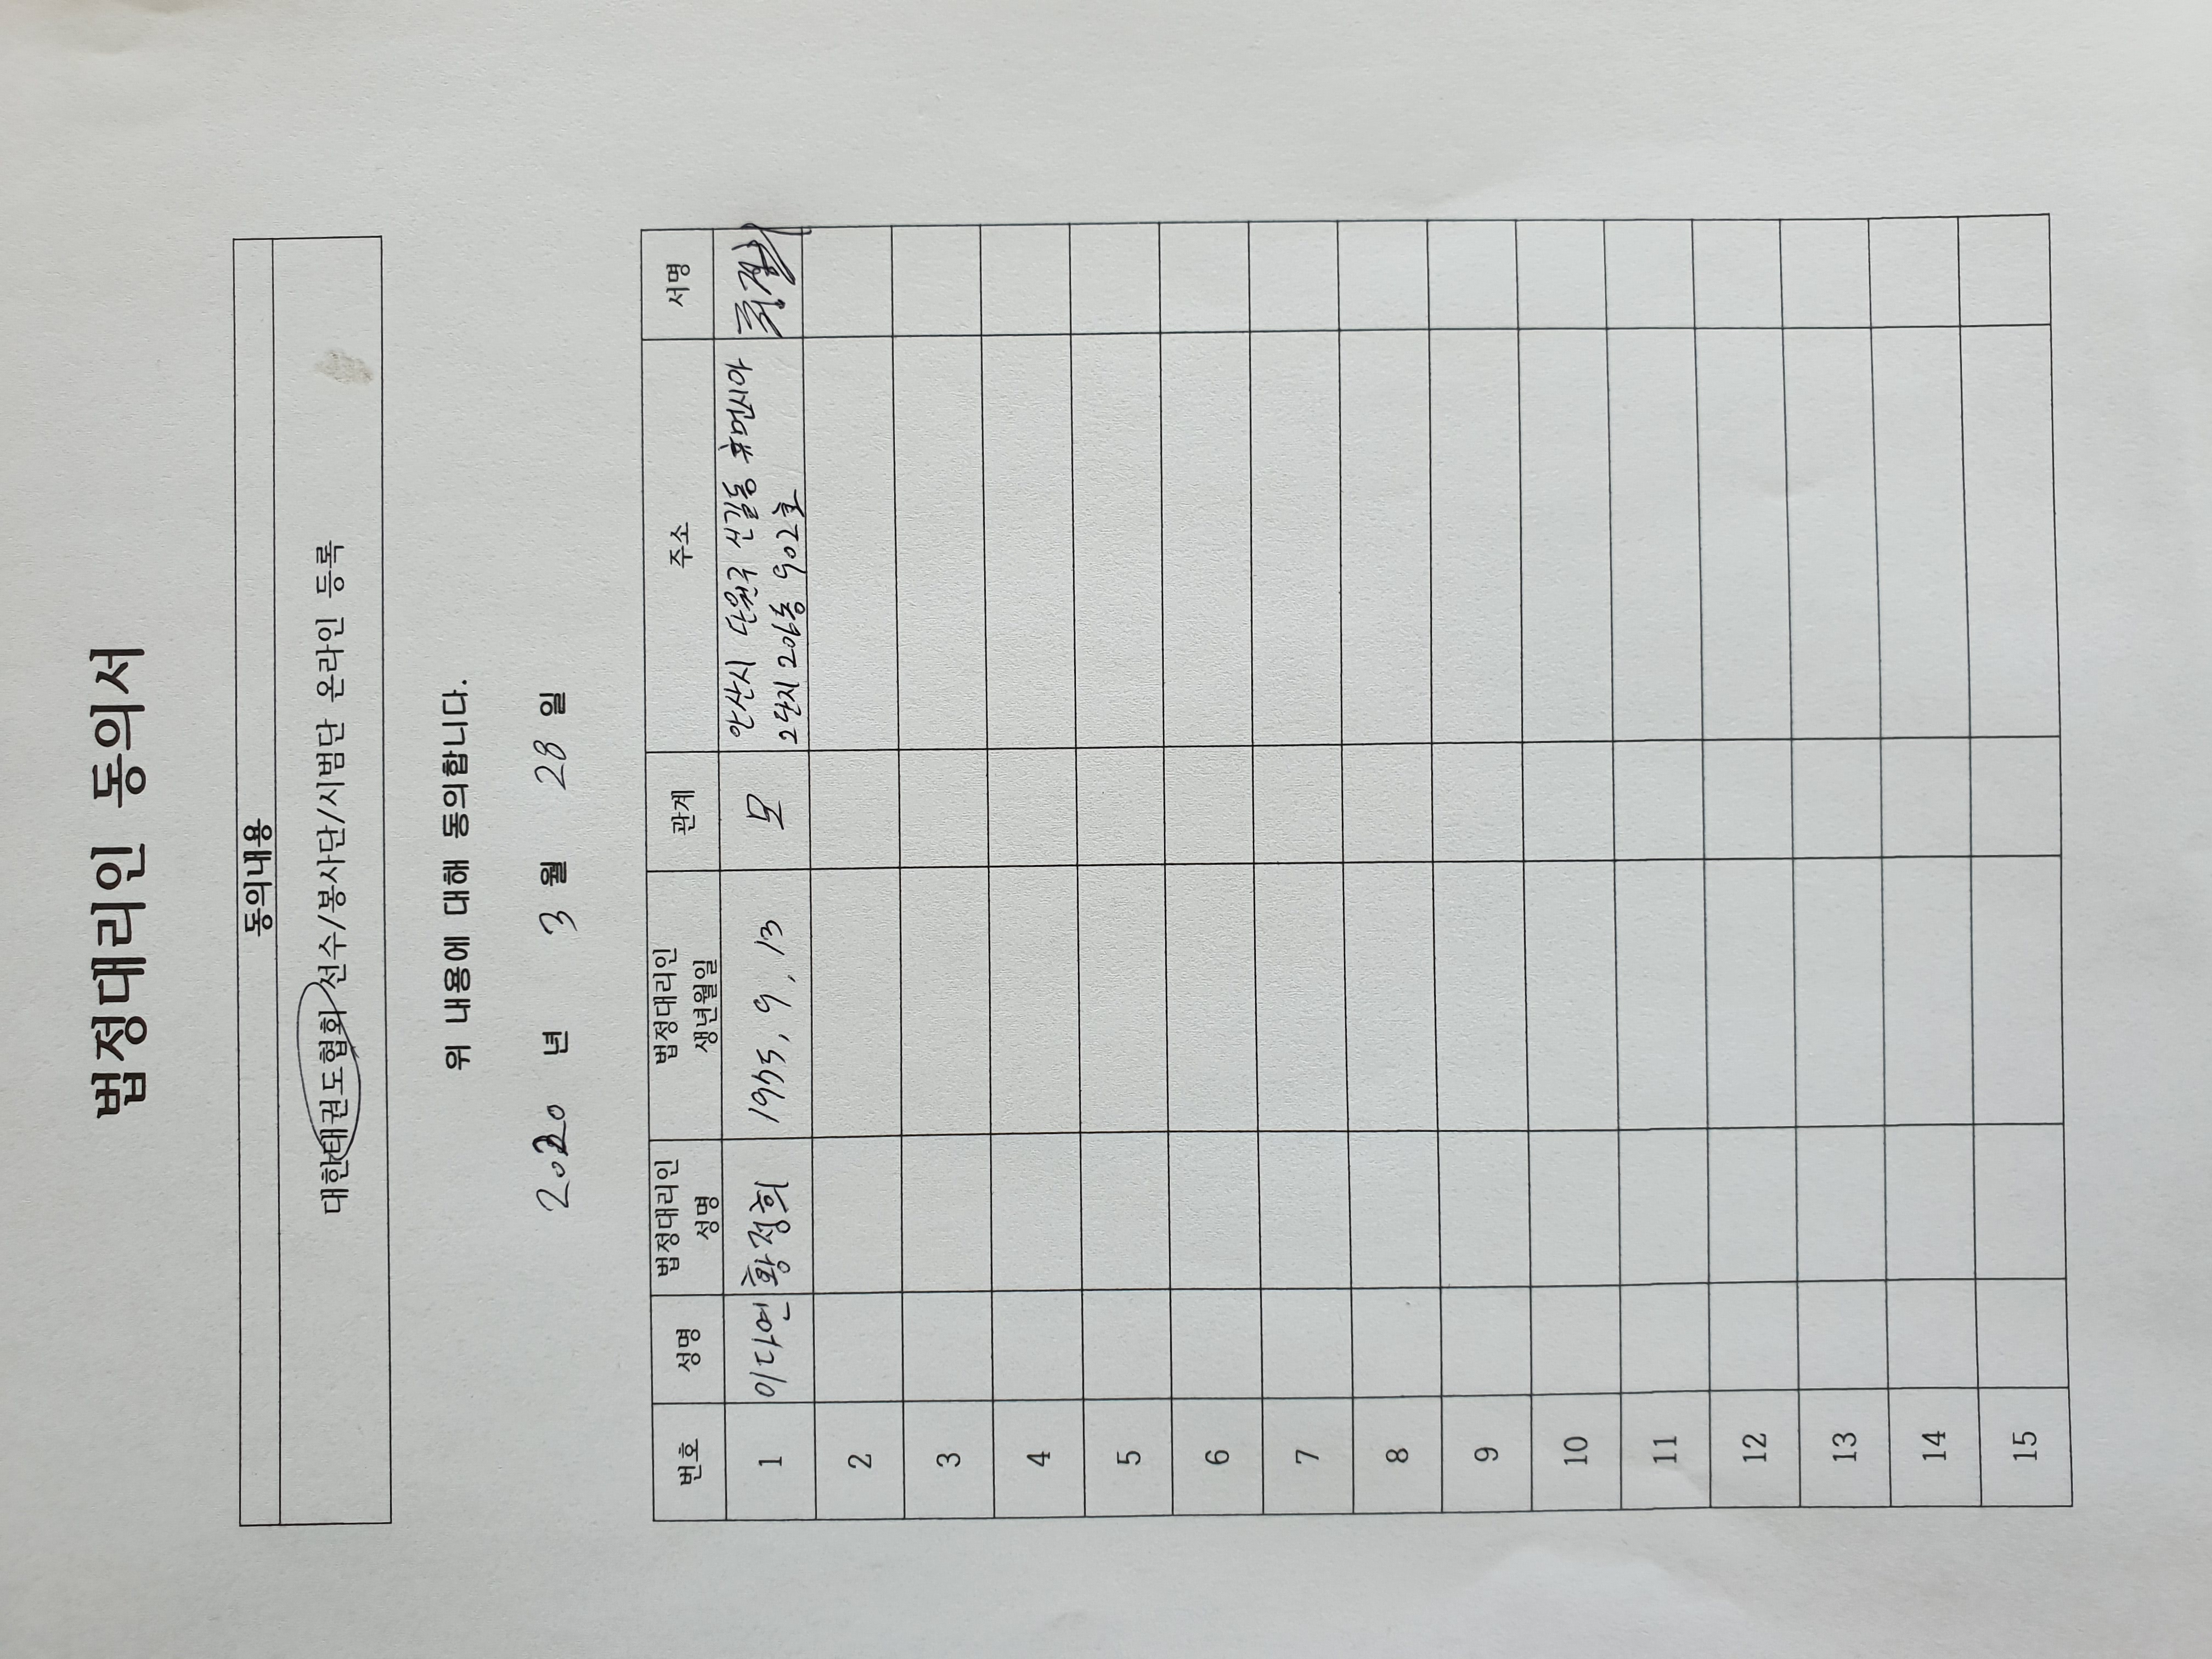 법정대리인 동의서
동의내용
대한태권도협회 선수/봉사단/시범단 온라인 등록
위 내용에 대해 동의합니다.
2020 년 3 월 28 일
번호 성명 법정대리인 성명 법정대리인 생년월일 관계 주소 서명
1 이다연 황정희 1975, 9, 13 모 안산시 단원구 선길동 휴먼시아
2단지 206동 902호
2
3
4
5
6
7
8
9
10
11
12
13
14
15